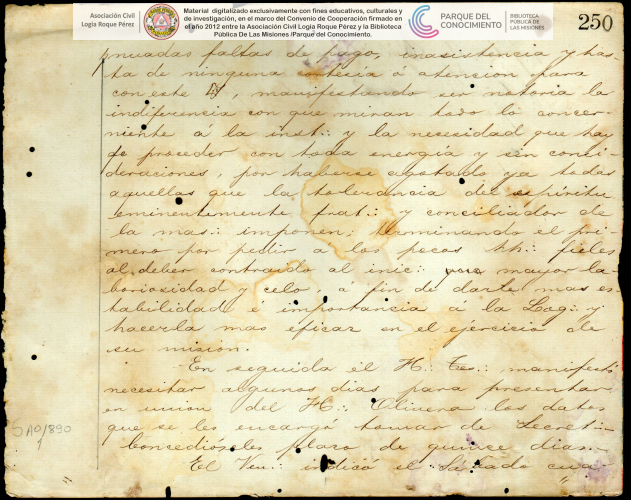 Asociación Civil
Logia Roque Pérez
Material digitalizado exclusivamente con fines educativos, culturales y
de investigación, en el marco del Convenio de Cooperación firmado en
el año 2012 entre la Asociación Civil Logia Roque Pérez y la Biblioteca
Pública De Las Misiones /Parque del Conocimiento.
PARQUE DEL
CONOCIMIENTO
BIBLIOTECA
PÚBLICA DE
LAS MISIONES
250
faltas de pago, inasistencia y has-
ta de ninguna cortesia o atencion para
con este, manifestando ser notoria la
indiferencia con que miran todo lo concer-
niente á la inst∴ y la necesidad que hay
de proceder con toda energía y sin consi-
deraciones, por haberse agotado ya todas
aquellas que la tolerancia del espíritu
eminentemente frat∴ y conciliador de
la mas∴ imponen, terminando el pri-
mero por pedir a los pocos hh∴ fieles
al deber contraido al inic∴ mayor la-
boriosidad y celo, á fin de darle mas es
tabilidad é importancia a la Log∴ y
hacerla mas eficaz en el ejercicio de
su mision.
En seguida el H∴ Tes∴ manifestó
necesitar algunos dias para presentar
en union del H∴ Olivera los datos
que se les encargó tomar de Secret∴
Concedióseles plazo de quince dias.
El Ven∴ indicó el Sábado
SAO/890
1